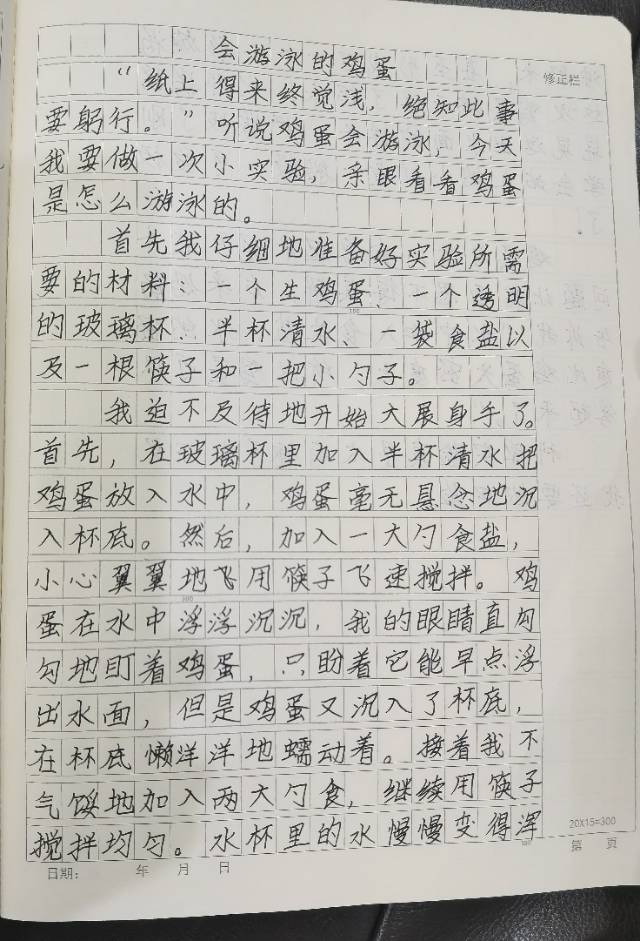 会游泳的鸡蛋
修正栏
“纸上得来终觉浅，绝知此事
要躬行。”听说鸡蛋会游泳，今天
我要做一次小实验，亲眼看看鸡蛋
是怎么游泳的。
首先我仔细地准备好实验所需
要的材料：一个生鸡蛋、一个透明
的玻璃杯、半杯清水、一袋食盐以
及一根筷子和一把小勺子。
我迫不及待地开始大展身手了。
首先，在玻璃杯里加入半杯清水把
鸡蛋放入水中，鸡蛋毫无悬念地沉
入杯底。然后，加入一大勺食盐，
小心翼翼地飞用筷子飞速搅拌。鸡
蛋在水中浮浮沉沉，我的眼睛直勾
勾地盯着鸡蛋，只盼着它能早点浮
出水面，但是鸡蛋又沉入了杯底，
在杯底懒洋洋地蠕动着。接着我不
气馁地加入两大勺食，继续用筷子
搅拌均匀。水杯里的水慢慢变得浑
20X15=300
日期： 年 月 日
第 页